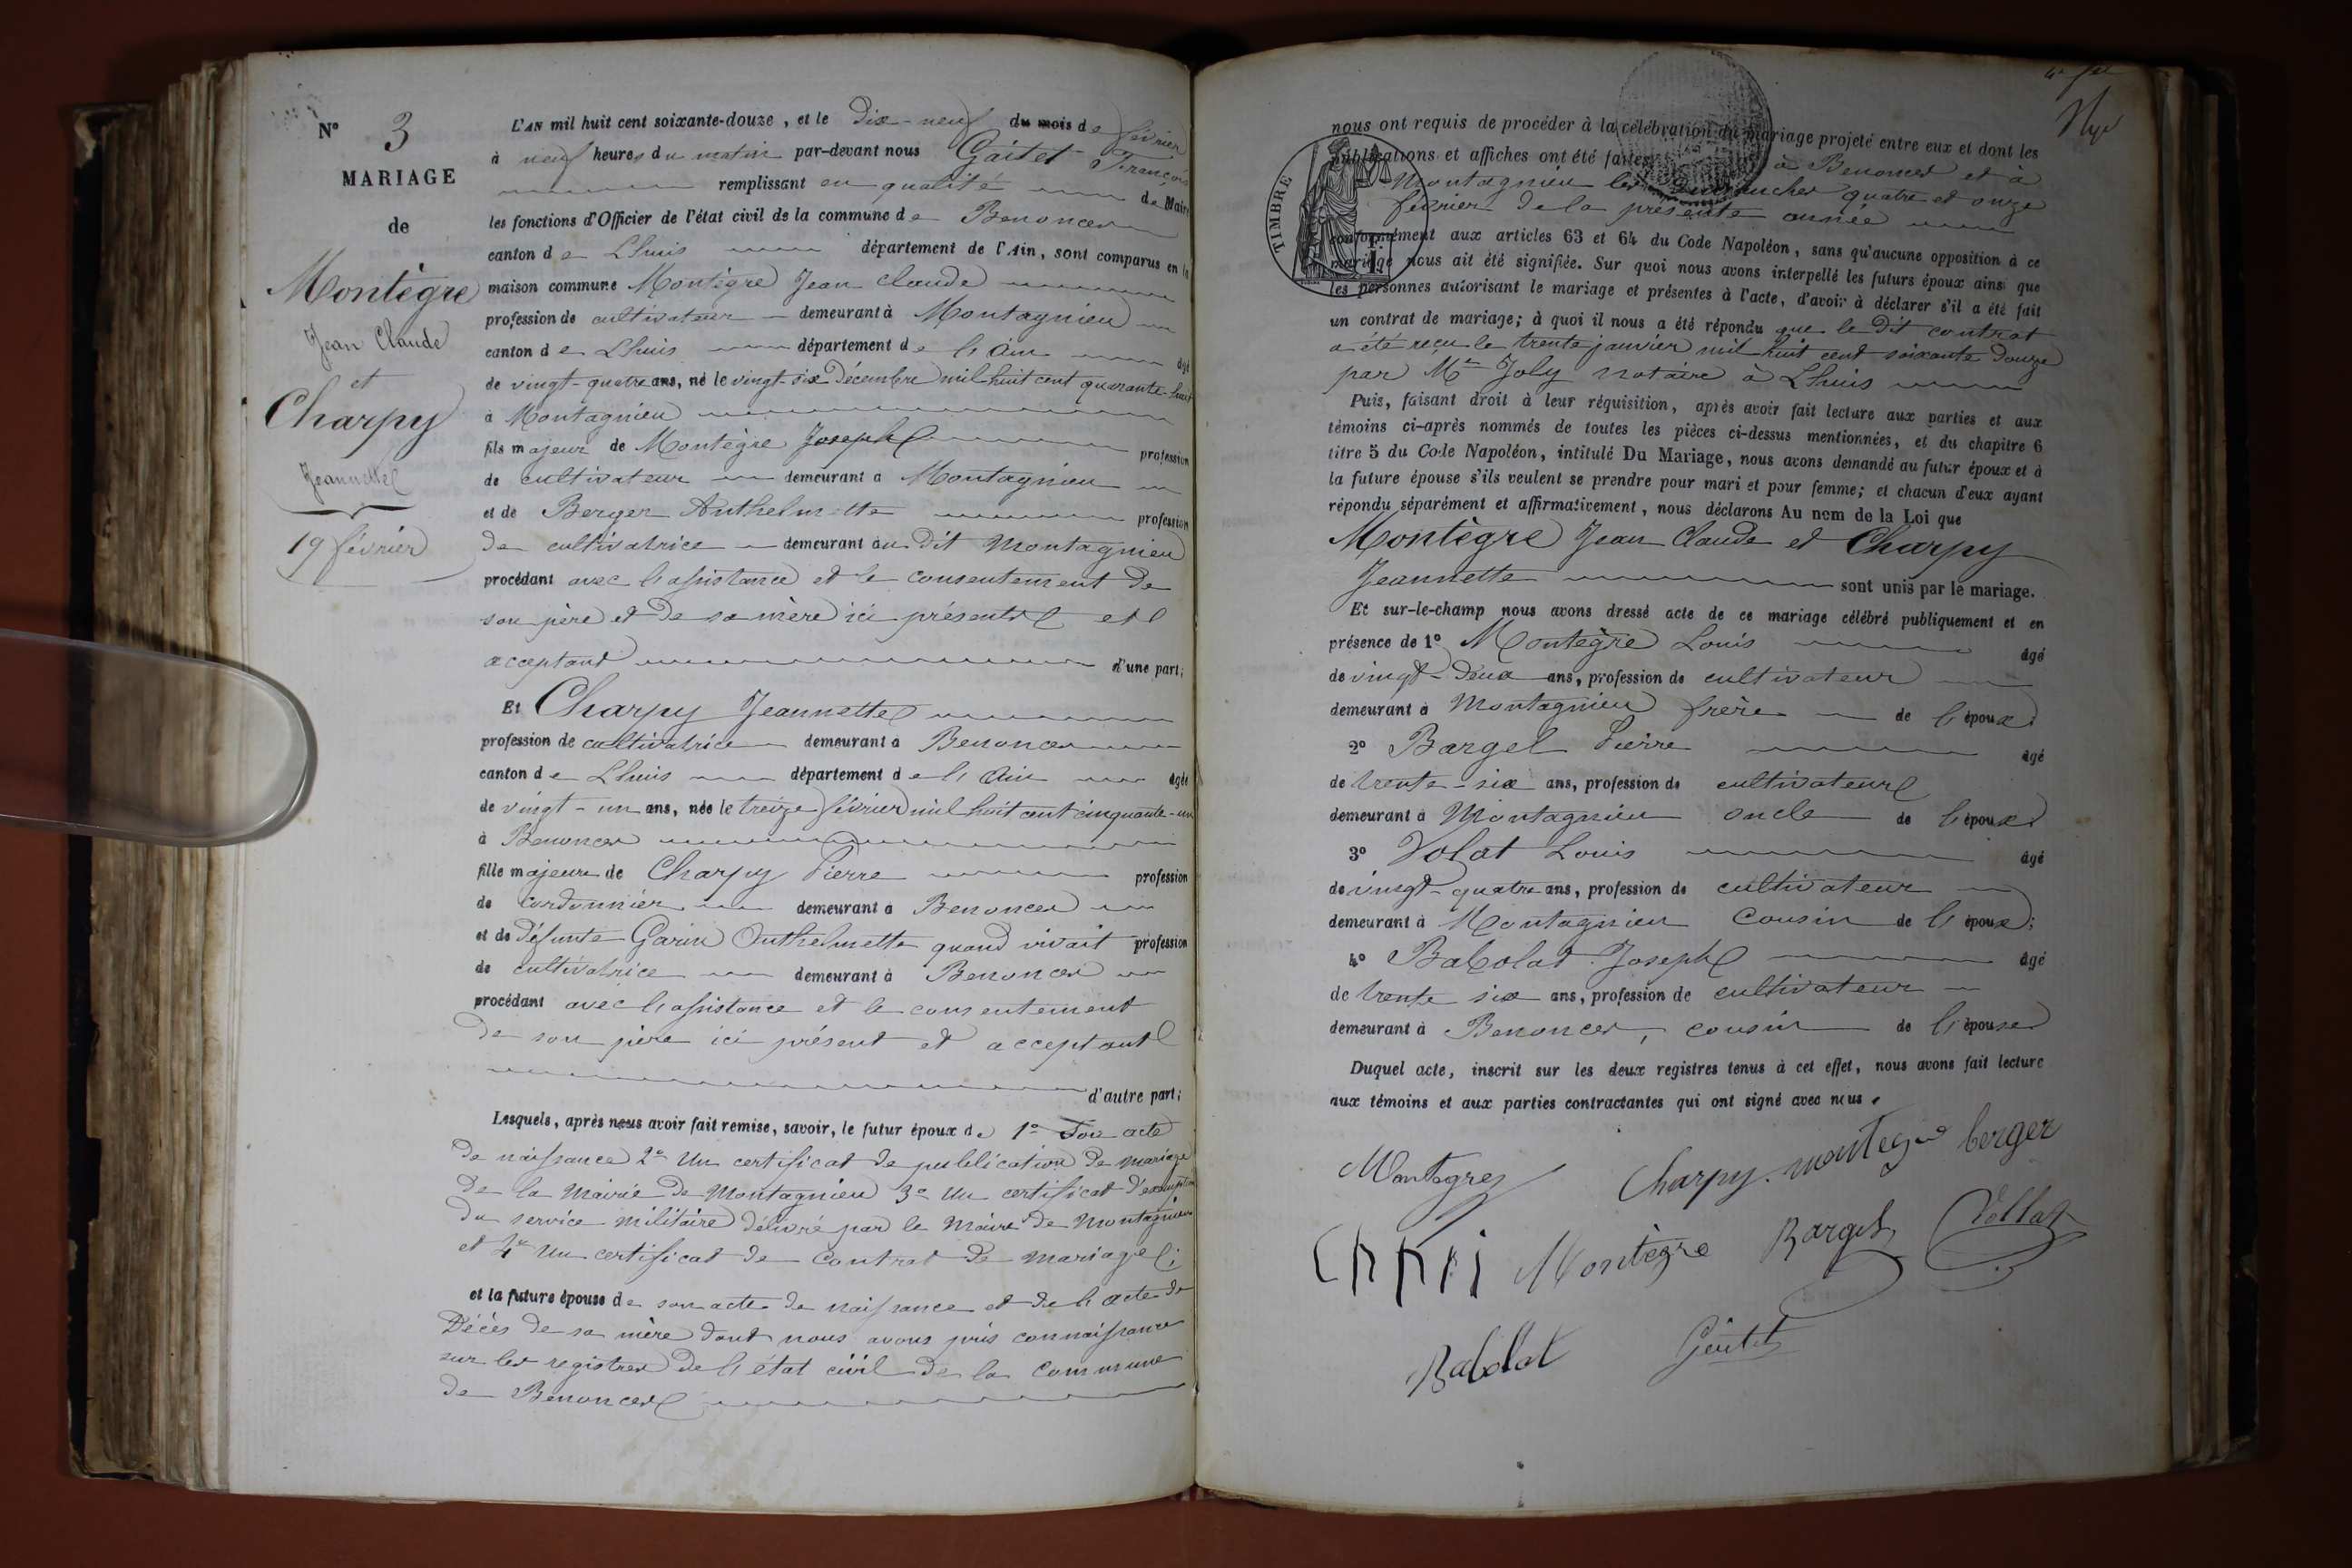 N° 3
MARIAGE
de
Montègre
Jean Claude
et
Charpy
Jeannette
19 février
L'AN mil huit cent soixante-douze, et le dix-neuf du mois de février
à neuf heures du matin par-devant nous Gaitet François
remplissant en qualité de Maire
les fonctions d'Officier de l'état civil de la commune de Benonces
canton de Lhuis département de l'Ain, sont comparus en la
maison commune Montègre Jean Claude
profession de cultivateur demeurant à Montagnieu
canton de Lhuis département de l'Ain âgé
de vingt-quatre ans, né le vingt-six Décembre mil huit cent quarante-huit
à Montagnieu
fils majeur de Montègre Joseph profession
de cultivateur demeurant à Montagnieu
et de Berger Anthelmette profession
de cultivatrice demeurant au dit Montagnieu
procédant avec l'assistance et le consentement de
son père et de sa mère ici présents et
acceptant d'une part;
Et Charpy Jeannette
profession de cultivatrice demeurant à Benonces
canton de Lhuis département de l'Ain âgée
de vingt-un ans, née le treize février mil huit cent cinquante-un
à Benonces
fille majeure de Charpy Pierre profession
de cordonnier demeurant à Benonces
et de défunte Garin Anthelmette quand vivait profession
de cultivatrice demeurant à Benonces
procédant avec l'assistance et le consentement
de son père ici présent et acceptant
d'autre part;
Lesquels, après nous avoir fait remise, savoir, le futur époux de 1° Son acte
de naissance 2° Un certificat de publication de mariage
de la Mairie de Montagnieu 3° Un certificat d'exemption
du service militaire délivré par le Maire de Montagnieu
et 4° Un certificat de Contrat de mariage;
et la future épouse de son acte de naissance et de l'acte de
Décès de sa mère dont nous avons pris connaissance
sur les registres de l'état civil de la Commune
de Benonces
nous ont requis de procéder à la célébration du mariage projeté entre eux et dont les
publications et affiches ont été faites à Benonces et à
Montagnieu les dimanches quatre et onze
février de la présente année
conformément aux articles 63 et 64 du Code Napoléon, sans qu'aucune opposition à ce
mariage nous ait été signifiée. Sur quoi nous avons interpellé les futurs époux ainsi que
les personnes autorisant le mariage et présentes à l'acte, d'avoir à déclarer s'il a été fait
un contrat de mariage; à quoi il nous a été répondu que le dit contrat
a été reçu le trente janvier mil huit cent soixante douze
par Me Joly notaire à Lhuis
Puis, faisant droit à leur réquisition, après avoir fait lecture aux parties et aux
témoins ci-après nommés de toutes les pièces ci-dessus mentionnées, et du chapitre 6
titre 5 du Code Napoléon, intitulé Du Mariage, nous avons demandé au futur époux et à
la future épouse s'ils veulent se prendre pour mari et pour femme; et chacun d'eux ayant
répondu séparément et affirmativement, nous déclarons Au nom de la Loi que
Montègre Jean Claude et Charpy
Jeannette sont unis par le mariage.
Et sur-le-champ nous avons dressé acte de ce mariage célébré publiquement et en
présence de 1° Montègre Louis âgé
de vingt-deux ans, profession de cultivateur
demeurant à Montagnieu frère de l'époux
2° Bargel Pierre âgé
de trente-six ans, profession de cultivateur
demeurant à Montagnieu oncle de l'époux
3° Volat Louis âgé
de vingt-quatre ans, profession de cultivateur
demeurant à Montagnieu Cousin de l'époux;
4° Babolat Joseph âgé
de trente six ans, profession de cultivateur
demeurant à Benonces, cousin de l'épouse
Duquel acte, inscrit sur les deux registres tenus à cet effet, nous avons fait lecture
aux témoins et aux parties contractantes qui ont signé avec nous.
Montegre Charpy. montegre berger
Montègre Bargel Vollat
Babolat Gaitet
TIMBRE